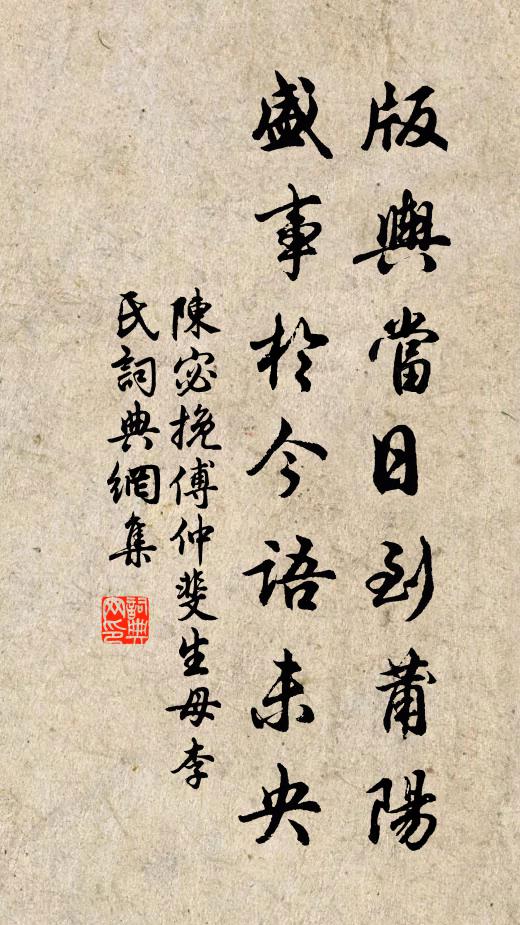 版輿當日到莆陽
盛事於今語未央
陳宓挽傅仲斐生母李
民詞典網集
詞典網印